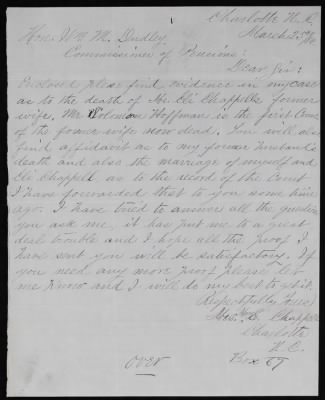 Charlotte N.C.
March 25
Hon. Wm M. Dudley
Commissioner of Pensions:
Dear Sir:
Enclosed please find evidence in my case
as to the death of Mr. Eli Chappell's former
wife. Mr. Solomon Hoffman is the first
of the former wife now dead. You will also
find affidavit as to my former husband's
death and also the marriage of myself and
Eli Chappell as to the record of the Court
I have forwarded that to you some time
ago. I have tried to answer all the questions
you ask me, it has put me to a great
deal trouble and I hope all the proof I
have sent you will be satisfactory. If
you need any more proof please let
me know and I will do my best to get it.
Respectfully Yours
Chappell
Charlotte
N.C.
Box
OVER